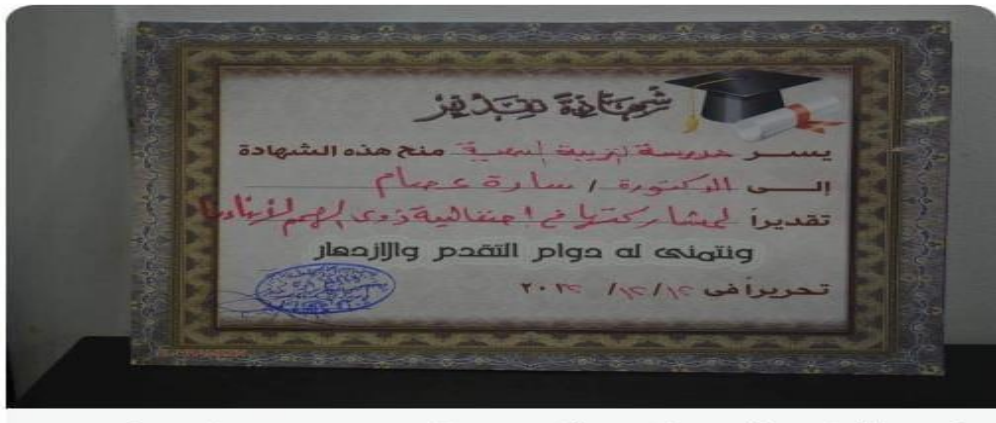 شهادة تقدير
يسر مدرسة التربية السمعية منح هذه الشهادة
إلى الدكتورة / سارة عصام
تقديراً لمشاركتها في احتفالية ذوى الهمم لأبنائنا
ونتمنى له دوام التقدم والإزدهار
تحريراً فى